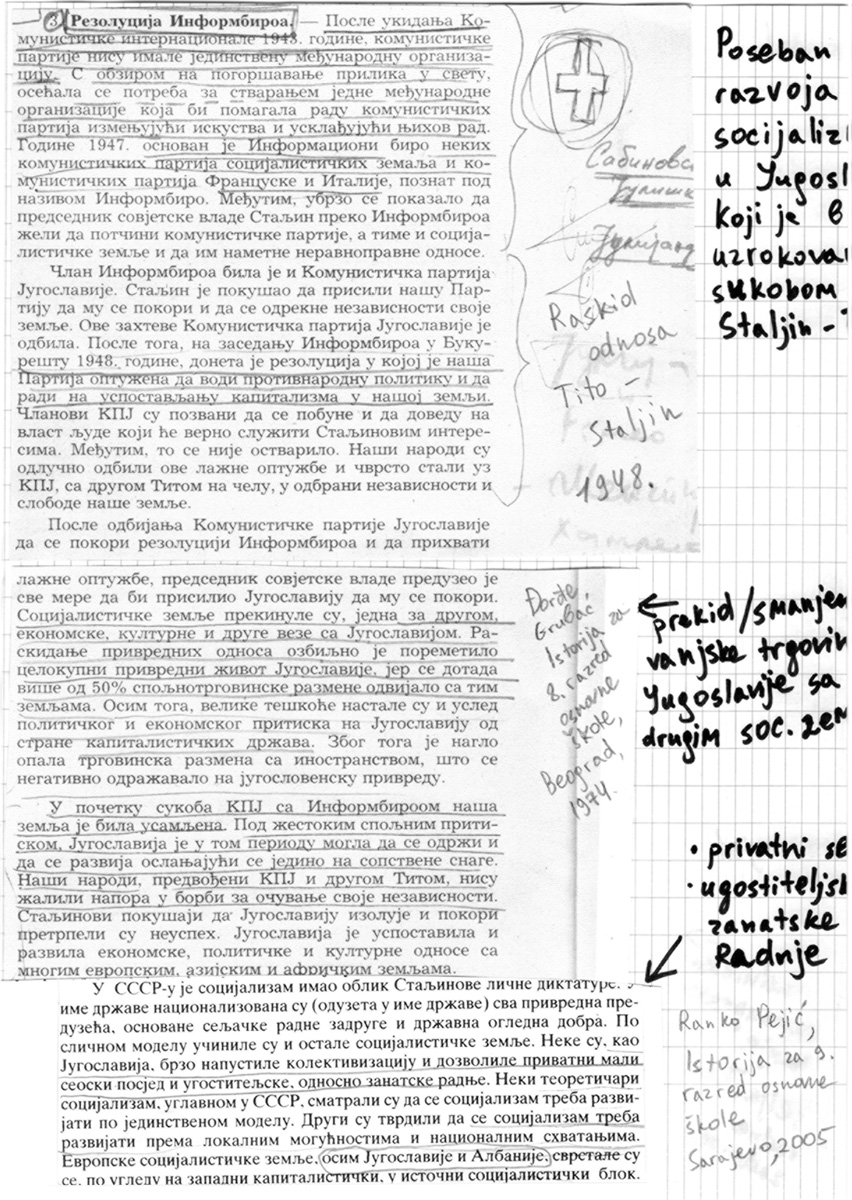 3 Резолуција Информбироа. — После укидања Ко-
мунистичке интернационале 1943. године, комунистичке
партије нису имале јединствену међународну организа-
цију. С обзиром на погоршавање прилика у свету,
осећала се потреба за стварањем једне међународне
организације која би помагала раду комунистичких
партија измењујући искуства и усклађујући њихов рад.
Године 1947. основан је Информациони биро неких
комунистичких партија социјалистичких земаља и ко-
мунистичких партија Француске и Италије, познат под
називом Информбиро. Међутим, убрзо се показало да
председник совјетске владе Стаљин преко Информбироа
жели да потчини комунистичке партије, а тиме и соција-
листичке земље и да им наметне неравноправне односе.
Члан Информбироа била је и Комунистичка партија
Југославије. Стаљин је покушао да присили нашу Пар-
тију да му се покори и да се одрекне независности своје
земље. Ове захтеве Комунистичка партија Југославије је
одбила. После тога, на заседању Информбироа у Буку-
решту 1948. године, донета је резолуција у којој је наша
Партија оптужена да води противнародну политику и да
ради на успостављању капитализма у нашој земљи.
Чланови КПЈ су позвани да се побуне и да доведу на
власт људе који ће верно служити Стаљиновим интере-
сима. Међутим, то се није остварило. Наши народи су
одлучно одбили ове лажне оптужбе и чврсто стали уз
КПЈ, са другом Титом на челу, у одбрани независности и
слободе наше земље.
После одбијања Комунистичке партије Југославије
да се покори резолуцији Информбироа и да прихвати
Raskid
odnosa
Tito -
Staljin
1948.
Poseban
razvoja
socijaliz
u Yugosl
koji je
uzrokova
sukobom
Staljin -
лажне оптужбе, председник совјетске владе предузео је
све мере да би присилио Југославију да му се покори.
Социјалистичке земље прекинуле су, једна за другом,
економске, културне и друге везе са Југославијом. Ра-
скидање привредних односа озбиљно је пореметило
целокупни привредни живот Југославије, јер се дотада
више од 50% спољнотрговинске размене одвијало са тим
земљама. Осим тога, велике тешкоће настале су и услед
политичког и економског притиска на Југославију од
стране капиталистичких држава. Због тога је нагло
опала трговинска размена са иностранством, што се
негативно одражавало на југословенску привреду.
У почетку сукоба КПЈ са Информбироом наша
земља је била усамљена. Под жестоким спољним прити-
ском, Југославија је у том периоду могла да се одржи и
да се развија ослањајући се једино на сопствене снаге.
Наши народи, предвођени КПЈ и другом Титом, нису
жалили напора у борби за очување своје независности.
Стаљинови покушаји да Југославију изолује и покори
претрпели су неуспех. Југославија је успоставила и
развила економске, политичке и културне односе са
многим европским, азијским и афричким земљама.
Đorđe
Grubač
Istorija za
8. razred
osnovne
škole,
Beograd,
1974.
prekid/smanjen
vanjske trgovin
Yugoslavije sa
drugim soc. zem
• privatni se
• ugostiteljsk
zanatske
Radnje
У СССР-у је социјализам имао облик Стаљинове личне диктатуре. У
име државе национализована су (одузета у име државе) сва привредна пре-
дузећа, основане сељачке радне задруге и државна огледна добра. По
сличном моделу учиниле су и остале социјалистичке земље. Неке су, као
Југославија, брзо напустиле колективизацију и дозволиле приватни мали
сеоски посјед и угоститељске, односно занатске радње. Неки теоретичари
социјализам, углавном у СССР, сматрали су да се социјализам треба разви-
јати по јединственом моделу. Други су тврдили да се социјализам треба
развијати према локалним могућностима и националним схватањима.
Европске социјалистичке земље, осим Југославије и Албаније, сврстале су
се, по угледу на западни капиталистички, у источни социјалистички блок.
Ranko Pejić,
Istorija za 9.
razred osnovne
škole
Sarajevo, 2005